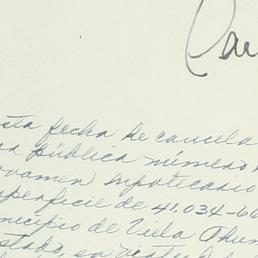 sta fecha se cancela
ra pública número
gravamen hipotecario
uperficie de 41,034-66
unicipio de Villa
stado, en virtud